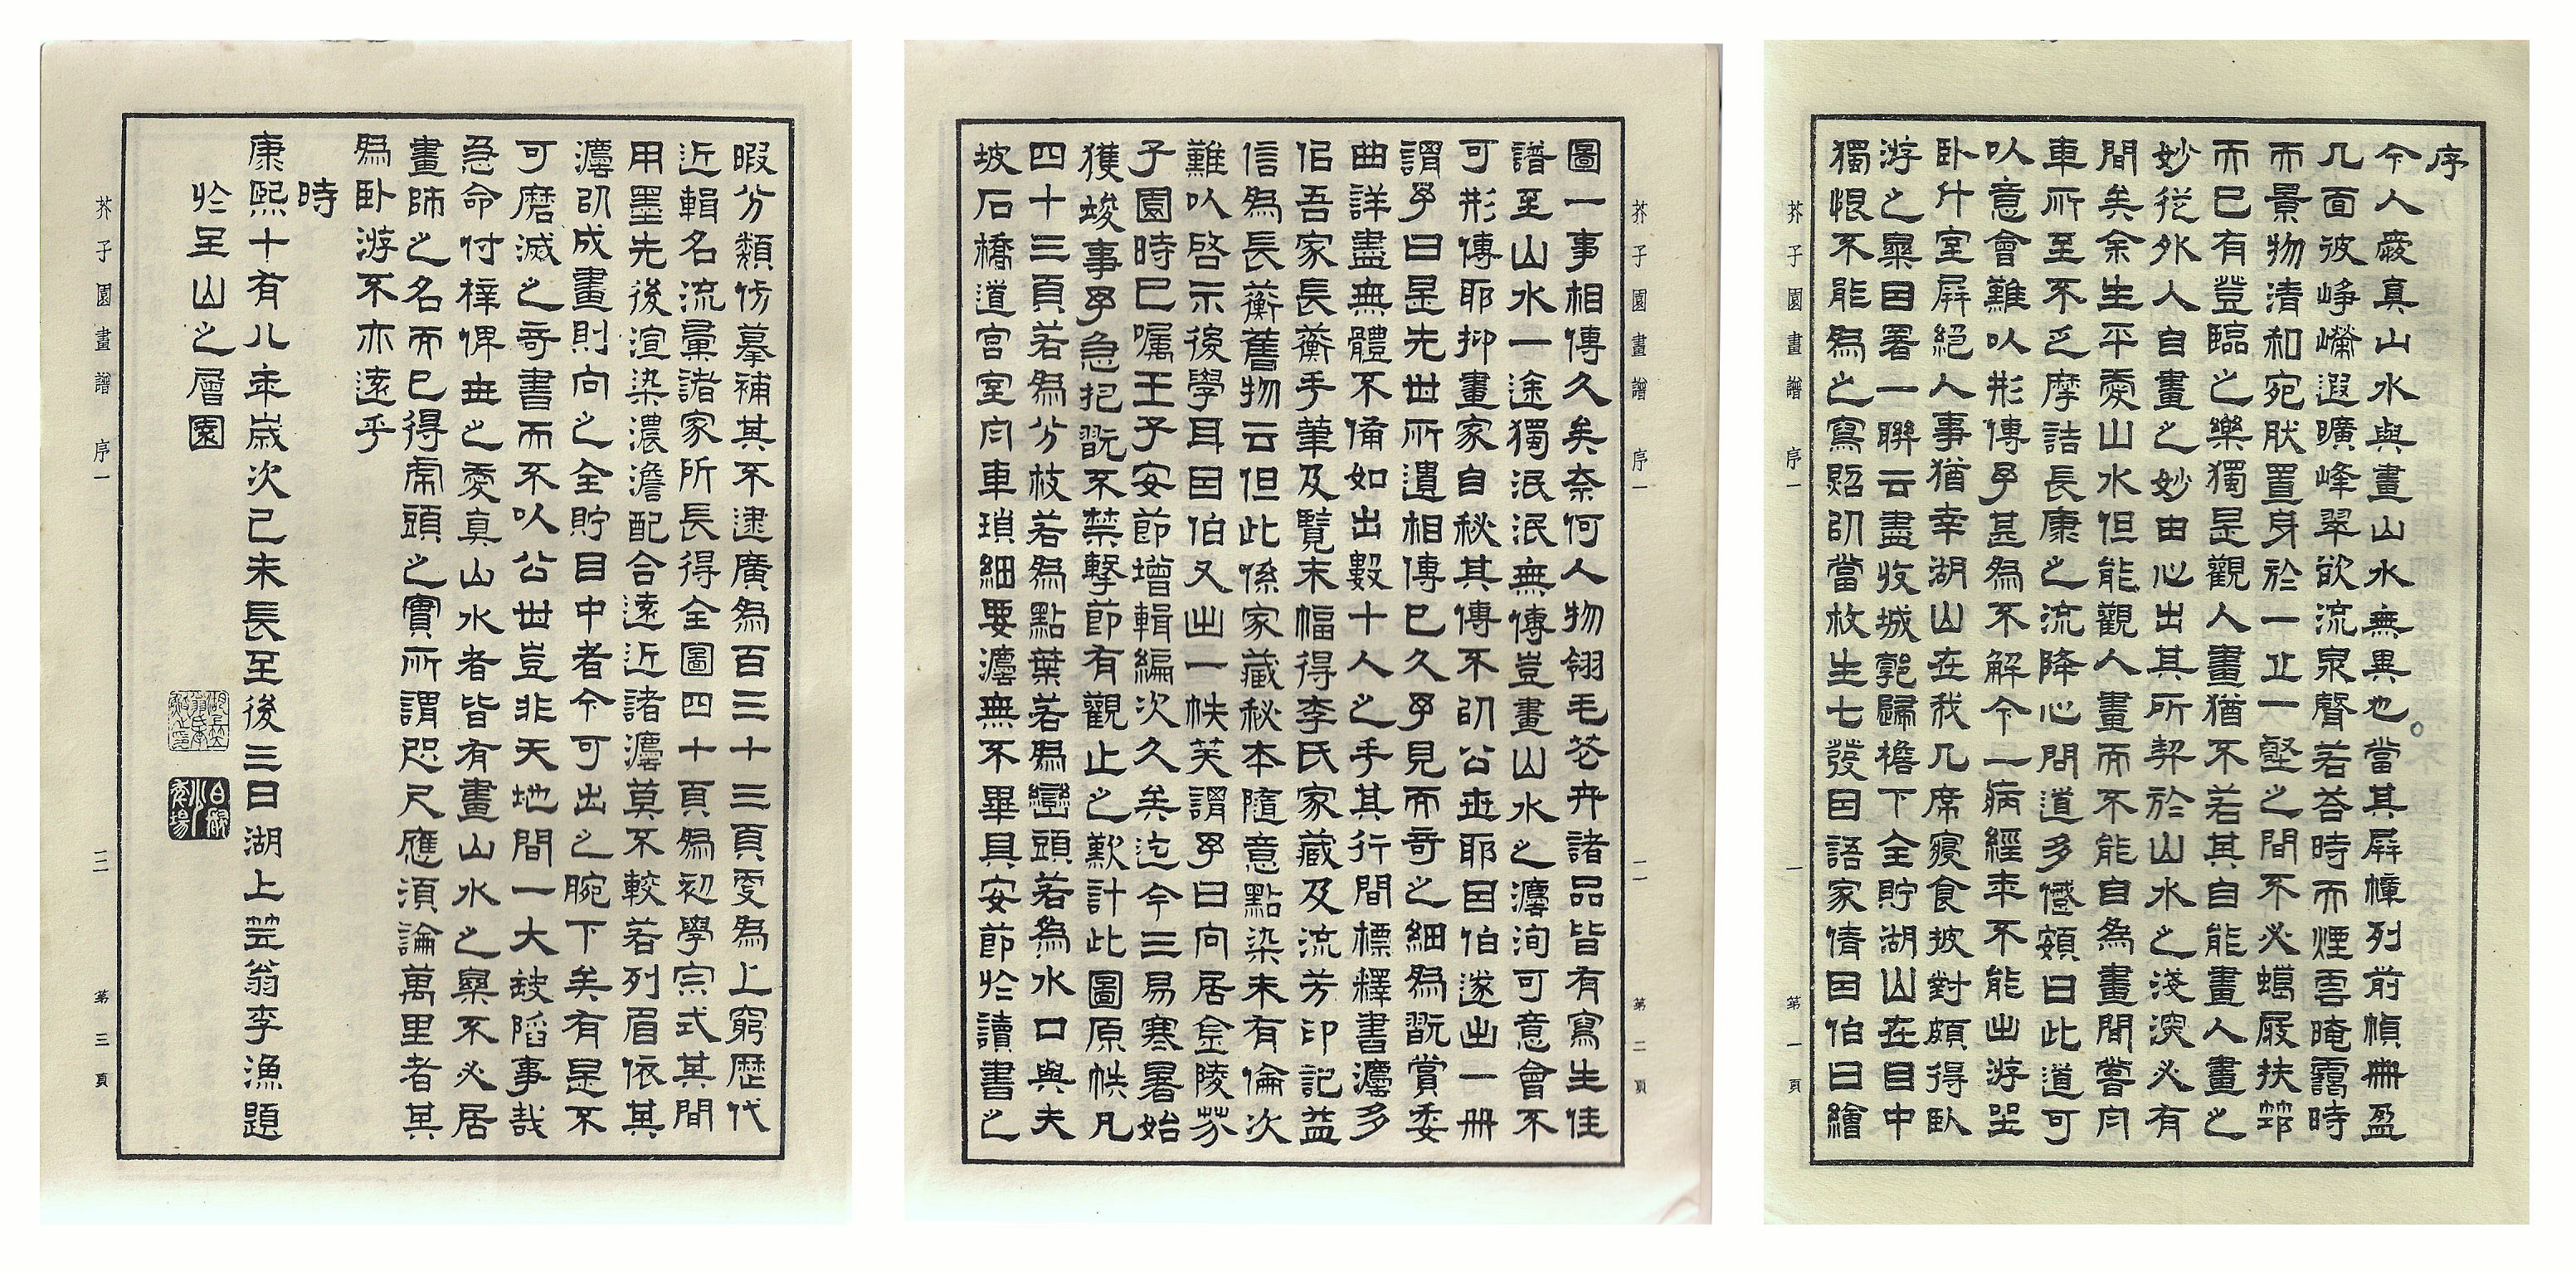 序
今人愛真山水與畫山水無異也當其屏幛列前幀冊盈
几面彼崢嶸遐曠峰翠欲流泉聲若答時而煙雲晻靄時
而景物清和宛肰置身於一丘一壑之間不必蠟屐扶筇
而已有登臨之樂獨是觀人畫猶不若其自能畫人畫之
妙從外人自畫之妙由心出其所契於山水之淺深必有
間矣余生平愛山水但能觀人畫而不能自為畫間嘗舟
車所至不乏摩詰長康之流降心問道多蹙頞曰此道可
以意會難以形傳予甚為不解今一病經年不能出游坐
臥斗室屏絕人事猶幸湖山在我几席寢食披對頗得臥
游之樂因署一聯云盡收城郭歸檐下全貯湖山在目中
獨恨不能為之寫照以當枚生七發因語家倩因伯曰繪
芥子園畫譜 序一 一 第一頁
芥子園畫譜 序一 二 第二頁
圖一事相傳久矣奈何人物翎毛花卉諸品皆有寫生佳
譜至山水一途獨泯泯無傳豈畫山水之灋洵可意會不
可形傳耶抑畫家自秘其傳不以公世耶因伯遂出一冊
謂予曰是先世所遺相傳已久予見而奇之細為翫賞委
曲詳盡無體不備如出數十人之手其行間標釋書灋多
佀吾家長蘅手筆及覽末幅得李氏家藏及流芳印記益
信為長蘅舊物云但此係家藏秘本隨意點染未有倫次
難以啓示後學耳因伯又出一帙笑謂予曰向居金陵芥
子園時已囑王子安節增輯編次久矣迄今三易寒暑始
獲竣事予急把翫不禁擊節有觀止之歎計此圖原帙凡
四十三頁若為分枝若為點葉若為巒頭若為水口與夫
坡石橋道宮室舟車瑣細要灋無不畢具安節於讀書之
暇分類仿摹補其不逮廣為百三十三頁更為上窮歷代
近輯名流彙諸家所長得全圖四十頁為初學宗式其間
用墨先後渲染濃澹配合遠近諸灋莫不較若列眉依其
灋以成畫則向之全貯目中者今可出之腕下矣有是不
可磨滅之奇書而不以公世豈非天地間一大缺陷事哉
急命付梓俾世之愛真山水者皆有畫山水之樂不必居
畫師之名而已得虎頭之實所謂咫尺應須論萬里者其
為臥游不亦遠乎
時
康熙十有八年歲次己未長至後三日湖上笠翁李漁題
於吳山之層園
芥子園畫譜 序一 二 第三頁